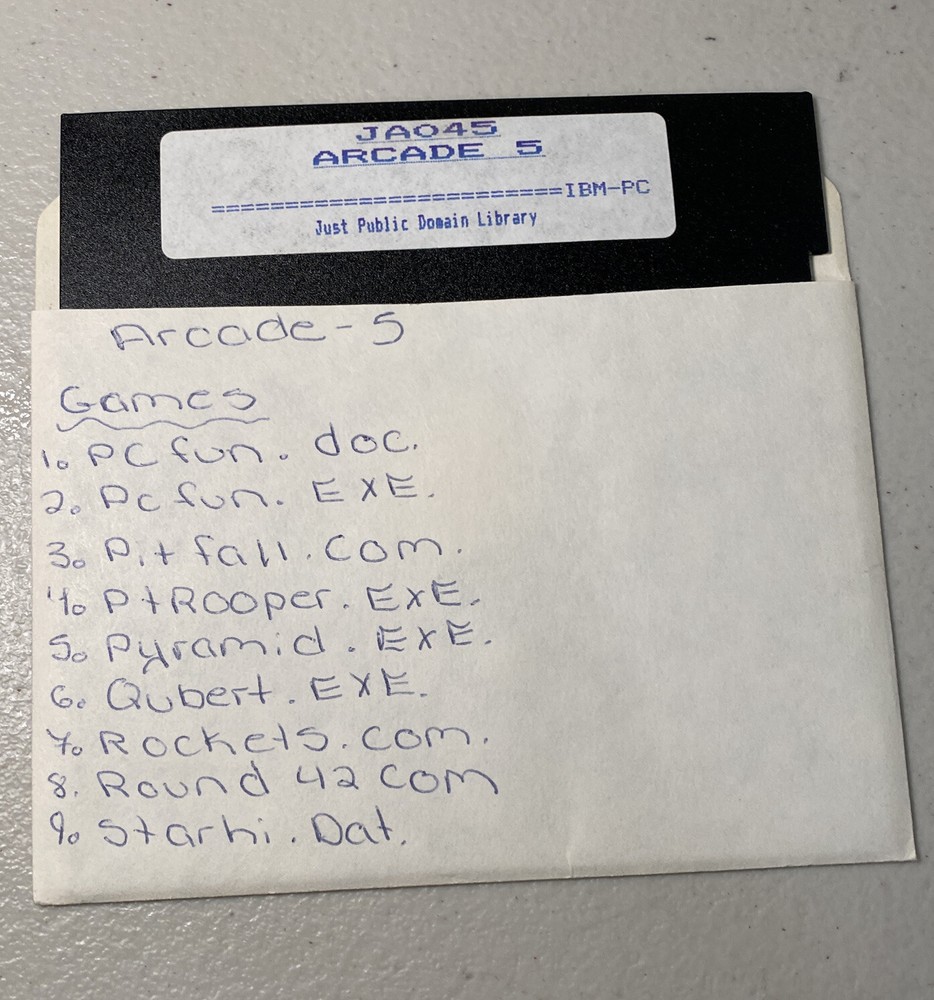 JA045
ARCADE 5
========================IBM-PC
Just Public Domain Library
Arcade-5
Games
1. PC fun. doc.
2. Pc fun. EXE.
3. Pitfall.com.
4. PtRooper. EXE.
5. Pyramid. EXE.
6. Qubert. EXE.
7. Rockets.com.
8. Round 42 com
9. Starhi. Dat.